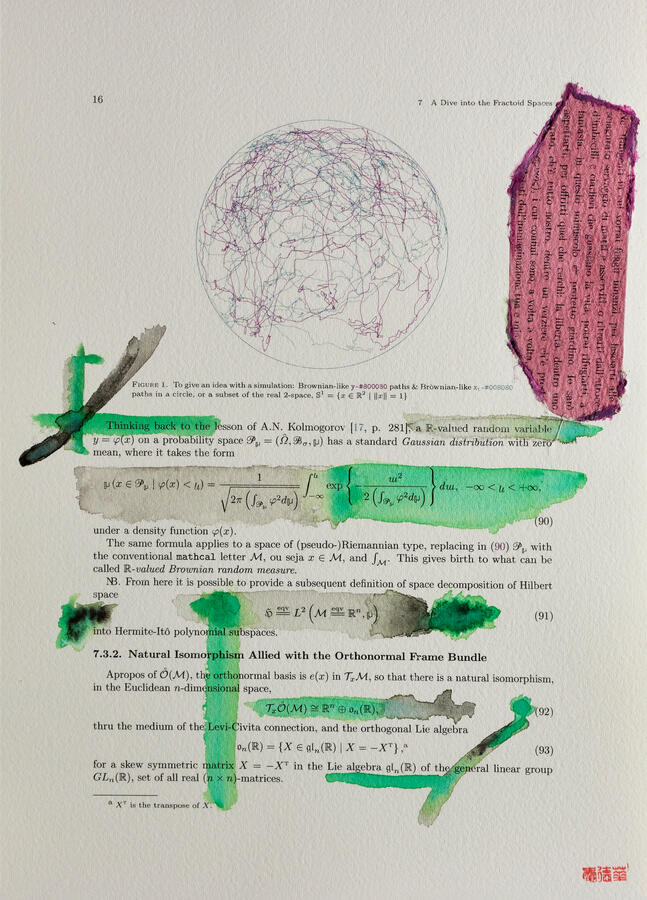 16
7 A Dive into the Fractoid Spaces
FIGURE 1. To give an idea with a simulation: Brownian-like y-#800080 paths & Brownian-like x, -#008080
paths in a circle, or a subset of the real 2-space, 𝕊¹ = {x ∈ ℝ² | ‖x‖ = 1}
Thinking back to the lesson of A.N. Kolmogorov [17, p. 281], a ℝ-valued random variable
y = φ(x) on a probability space 𝒫_μ = (Ω̂, ℬ_σ, μ) has a standard Gaussian distribution with zero
mean, where it takes the form
μ (x ∈ 𝒫_μ | φ(x) < u) = 1 / √(2π (∫_𝒫_μ φ²dμ)) ∫_{-∞}^{u} exp { − w² / 2 (∫_𝒫_μ φ²dμ) } dw, −∞ < u < +∞,
(90)
under a density function φ(x).
The same formula applies to a space of (pseudo-)Riemannian type, replacing in (90) 𝒫_μ with
the conventional mathcal letter ℳ, ou seja x ∈ ℳ, and ∫_ℳ. This gives birth to what can be
called ℝ-valued Brownian random measure.
NB. From here it is possible to provide a subsequent definition of space decomposition of Hilbert
space
ℌ ≝(eqv) L² (ℳ ≝(eqv) ℝⁿ, μ) (91)
into Hermite-Itô polynomial subspaces.
7.3.2. Natural Isomorphism Allied with the Orthonormal Frame Bundle
Apropos of 𝒪̂(ℳ), the orthonormal basis is e(x) in 𝒯ₓℳ, so that there is a natural isomorphism,
in the Euclidean n-dimensional space,
𝒯ₓ𝒪̂(ℳ) ≅ ℝⁿ ⊕ 𝔬ₙ(ℝ), (92)
thru the medium of the Levi-Civita connection, and the orthogonal Lie algebra
𝔬ₙ(ℝ) = {X ∈ 𝔤𝔩ₙ(ℝ) | X = −Xᵀ},ᵃ (93)
for a skew symmetric matrix X = −Xᵀ in the Lie algebra 𝔤𝔩ₙ(ℝ) of the general linear group
GLₙ(ℝ), set of all real (n × n)-matrices.
ᵃ Xᵀ is the transpose of X.